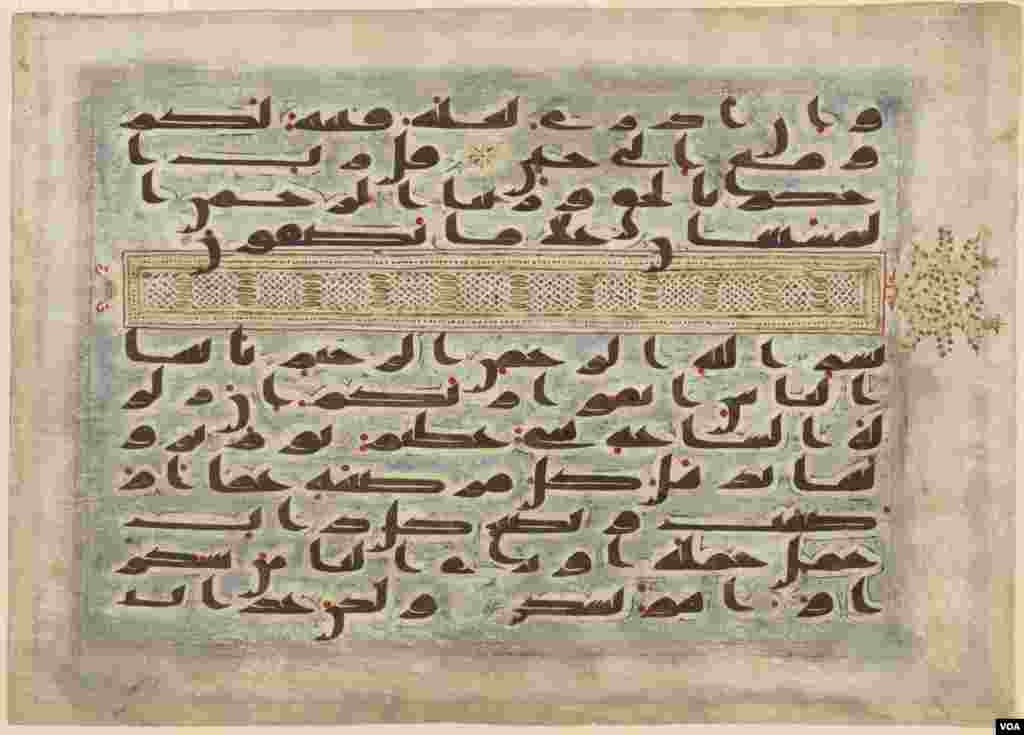 وان ادرى لعله فتنه لكم
ومتع الى حين قل رب ا
حكم بالحق وربنا الرحمن ا
لمستعن على ما تصفون
بسم الله الرحمن الرحيم يايها
الناس اتقوا ربكم ان زلز
له الساعه شى عظيم يوم ترو
نها تذهل كل مرضعه عما ار
ضعت وتضع كل ذات
حمل حملها وترى الناس سكر
ى وما هم بسكرى ولكن عذاب
VOA